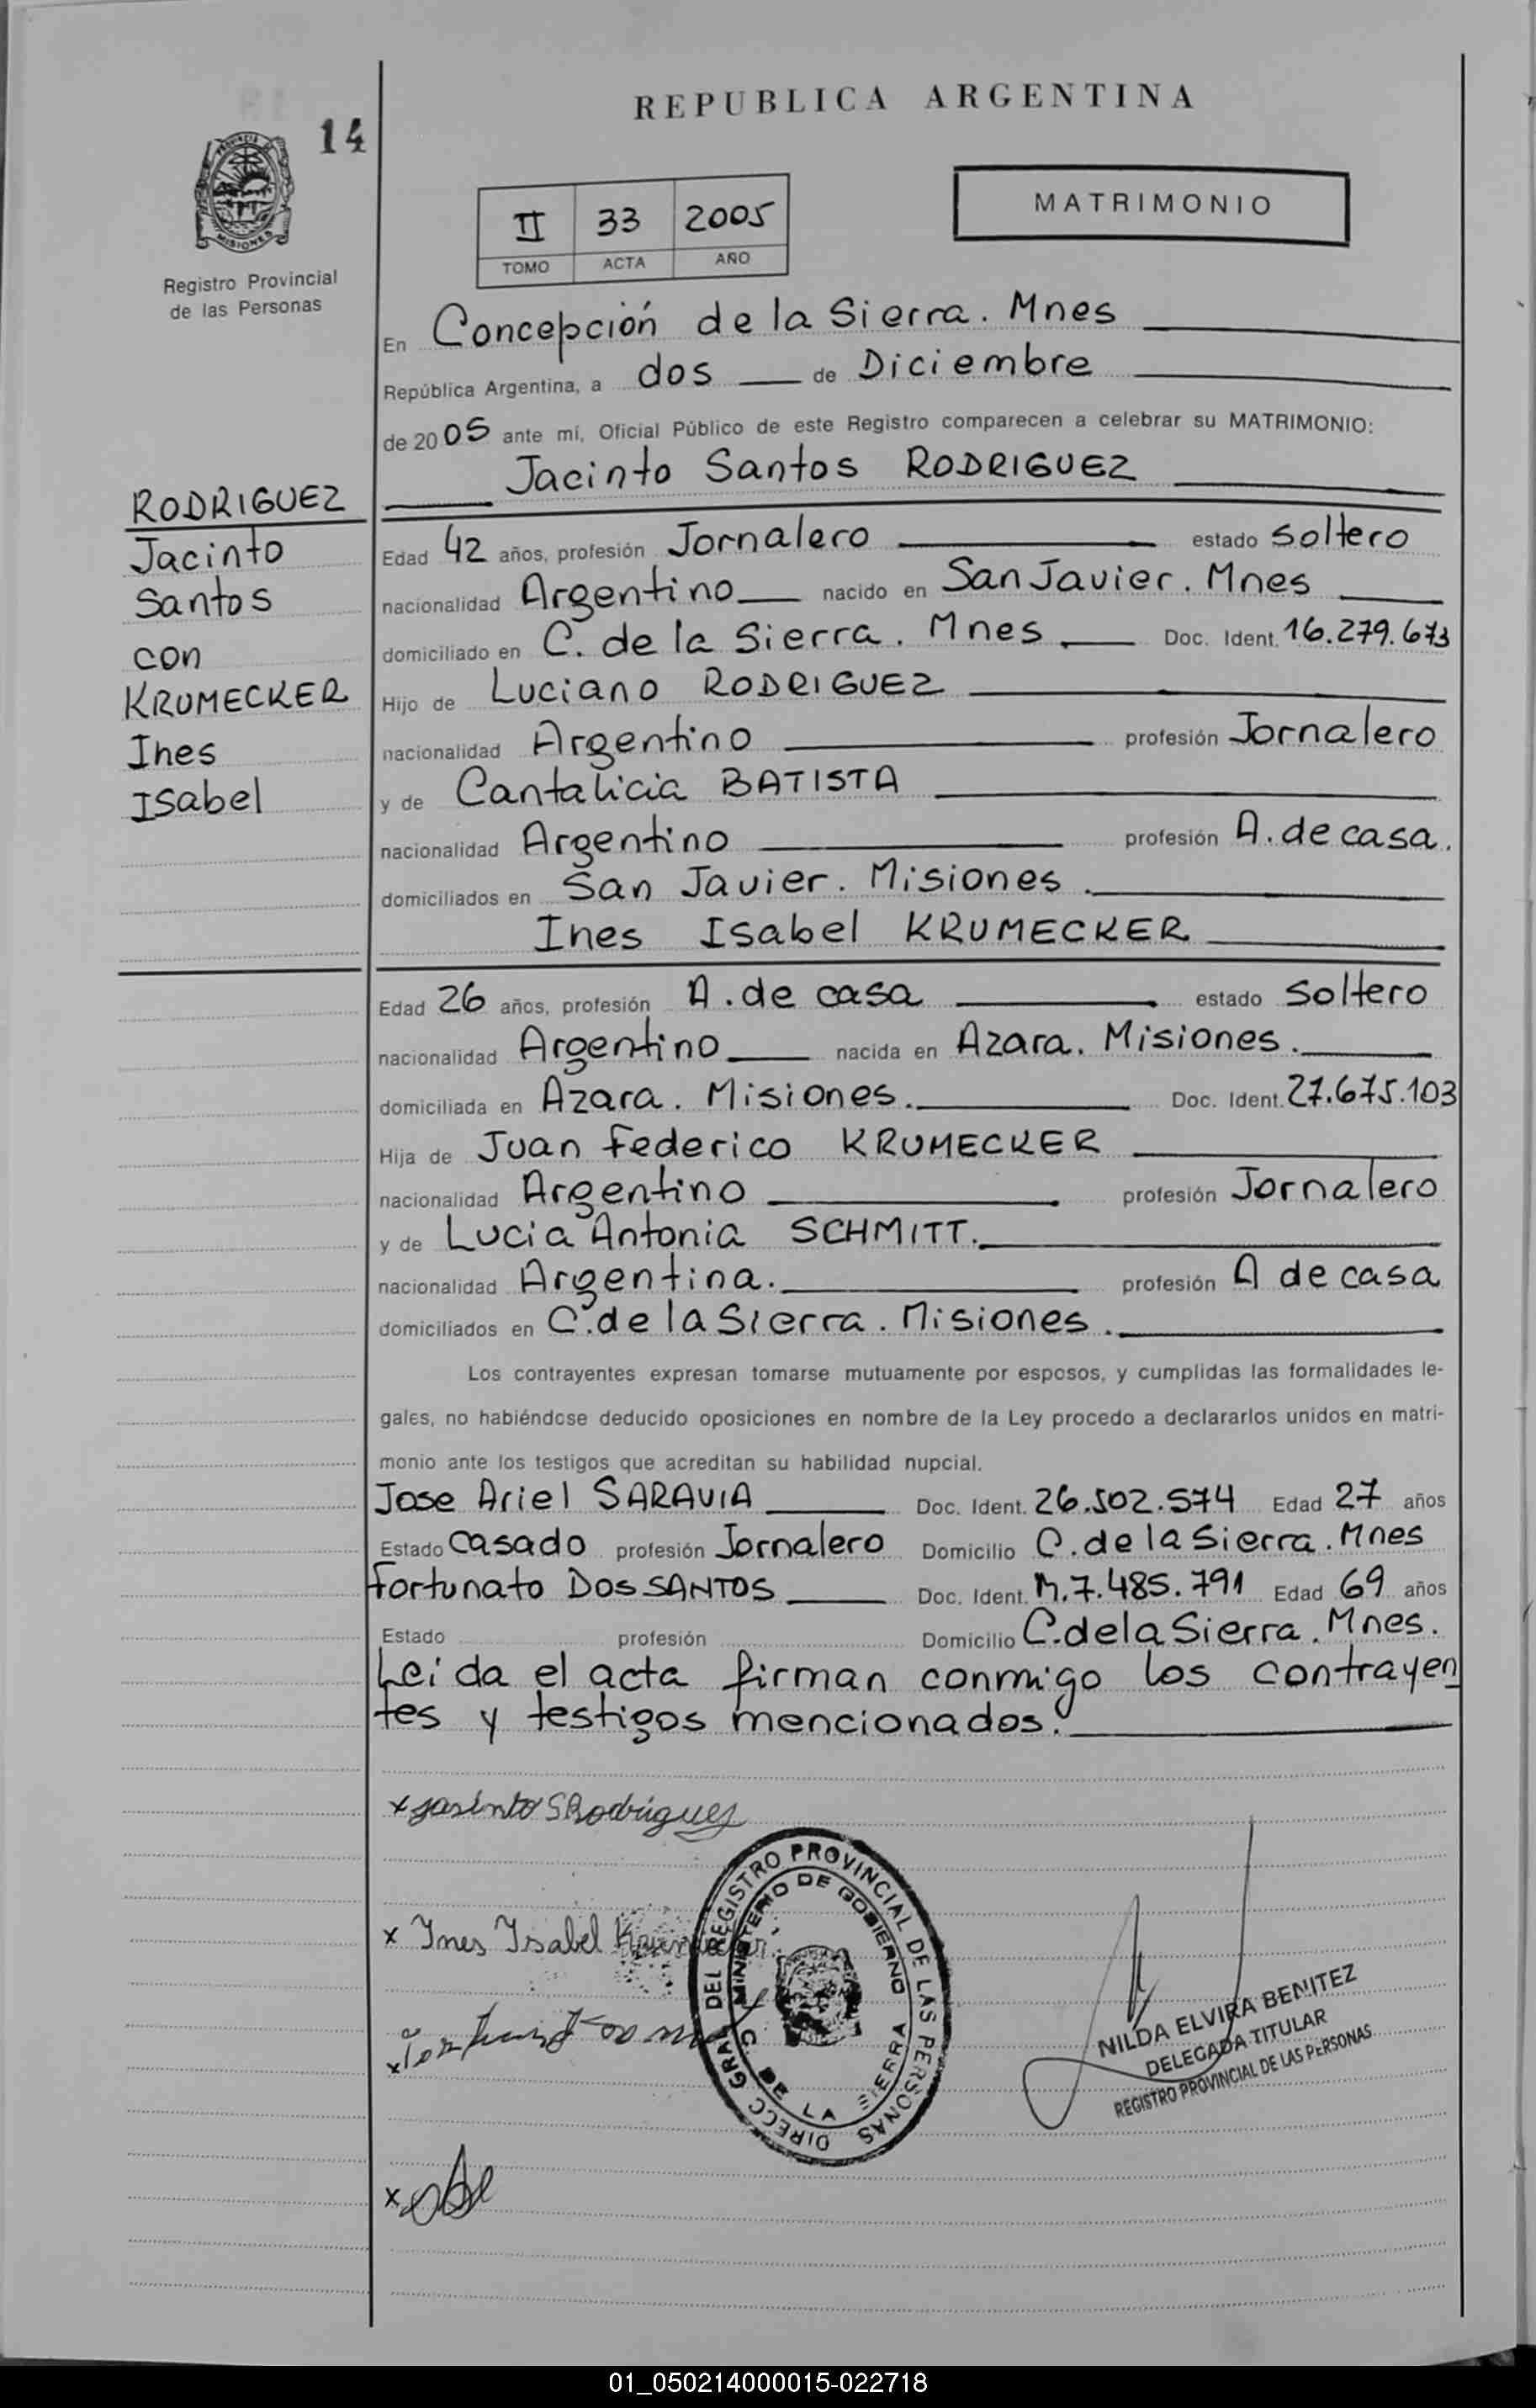 REPUBLICA ARGENTINA
14
MISIONES
Registro Provincial
de las Personas
II 33 2005
TOMO ACTA AÑO
MATRIMONIO
En Concepción de la Sierra. Mnes
República Argentina, a dos de Diciembre
de 2005 ante mi, Oficial Público de este Registro comparecen a celebrar su MATRIMONIO:
Jacinto Santos RODRIGUEZ
RODRIGUEZ
Jacinto
Santos
con
KRUMECKER
Ines
Isabel
Edad 42 años, profesión Jornalero estado Soltero
nacionalidad Argentino nacido en San Javier. Mnes
domiciliado en C. de la Sierra. Mnes Doc. Ident. 16.279.673
Hijo de Luciano RODRIGUEZ
nacionalidad Argentino profesión Jornalero
y de Cantalicia BATISTA
nacionalidad Argentino profesión A. de casa.
domiciliados en San Javier. Misiones.
Ines Isabel KRUMECKER
Edad 26 años, profesión A. de casa estado Soltero
nacionalidad Argentino nacida en Azara. Misiones.
domiciliada en Azara. Misiones. Doc. Ident. 27.675.103
Hija de Juan Federico KRUMECKER
nacionalidad Argentino profesión Jornalero
y de Lucia Antonia SCHMITT.
nacionalidad Argentina. profesión A de casa
domiciliados en C. de la Sierra. Misiones.
Los contrayentes expresan tomarse mutuamente por esposos, y cumplidas las formalidades le-
gales, no habiéndose deducido oposiciones en nombre de la Ley procedo a declararlos unidos en matri-
monio ante los testigos que acreditan su habilidad nupcial.
Jose Ariel SARAVIA Doc. Ident. 26.502.574 Edad 27 años
Estado Casado profesión Jornalero Domicilio C. de la Sierra. Mnes
Fortunato DOS SANTOS Doc. Ident. M.7.485.791 Edad 69 años
Estado profesión Domicilio C. de la Sierra. Mnes.
Leida el acta firman conmigo los contrayen
tes y testigos mencionados.
x Jasinto S Rodriguez
x Ines Ysabel Krumecker
DIRECC GRAL DEL REGISTRO PROVINCIAL DE LAS PERSONAS
MINISTERIO DE GOBIERNO
C DE LA SIERRA
NILDA ELVIRA BENITEZ
DELEGADA TITULAR
REGISTRO PROVINCIAL DE LAS PERSONAS
x
x
01_050214000015-022718